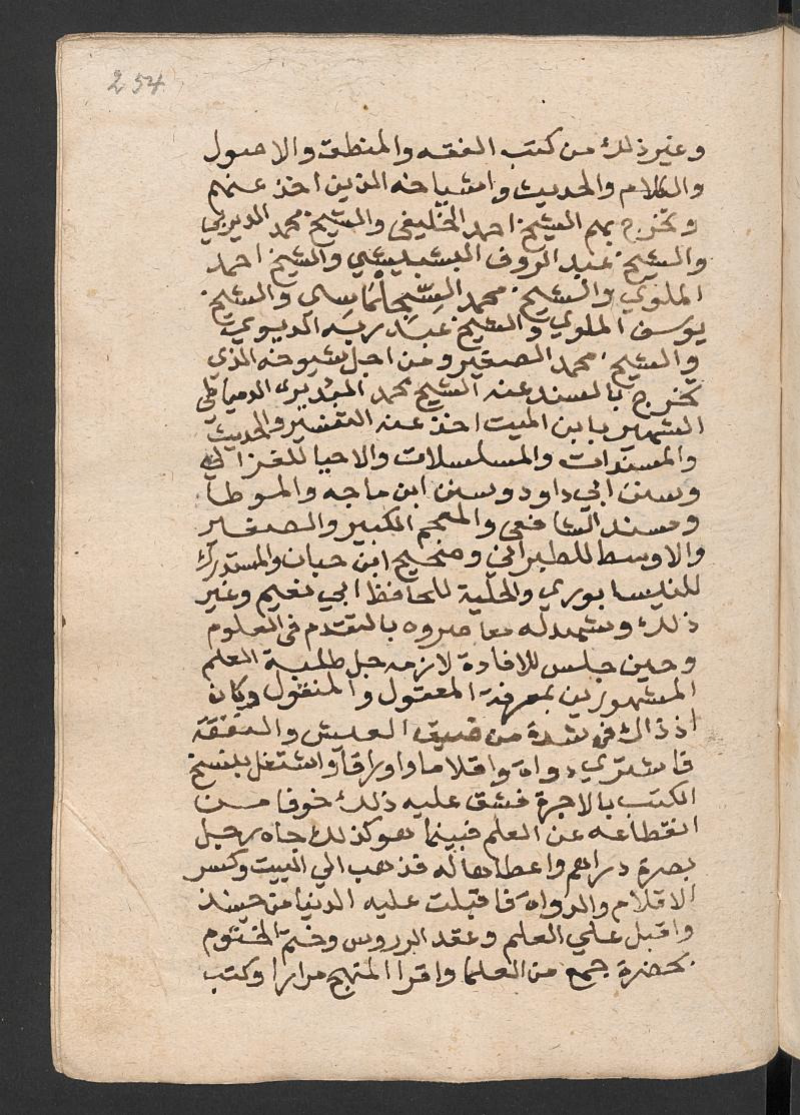 254
وغير ذلك من كتب الفقه والمنطق والاصول
والكلام والحديث واشياخه الذين اخذ عنهم
وتخرج بهم الشيخ احمد الخليفى والشيخ محمد الديربي
والشيخ عبد الروف البشبيشي والشيخ احمد
الملوي والشيخ محمد السِّجِلْمَاسِي والشيخ
يوسف الملوي والشيخ عبد ربه الديوي
والشيخ محمد الصغير ومن اجل شيوخه الذي
تخرج بالسند عنه الشيخ محمد البديرى الدمياطي
الشهير بابن الميت اخذ عنه التفسير والحديث
والمسندات والمسلسلات والاحيا للغزالي
وسنن ابي داود وسنن ابن ماجه والموطا
ومسند الشافعى والمعجم الكبير والصغير
والاوسط للطبراني وصحيح ابن حبان والمستدرك
للنيسابوري والحلية للحافظ ابي نعيم وغير
ذلك وشهد له معاصروه بالتقدم فى العلوم
وحين جلس للافادة لازمه جل طلبة العلم
المشهورين بمعرفة المعقول والمنقول وكان
اذ ذاك فى شدة من ضيق العيش والنفقة
فاشتري دواة واقلاما واوراقا واشتغل بنسخ
الكتب بالاجرة فشق عليه ذلك خوفا من
انقطاعه عن العلم فبينما هو كذلك جاه رجل
بصرة دراهم واعطاها له فذهب الي البيت وكسر
الاقلام والدواة فاقبلت عليه الدنيا من حينئذ
واقبل علي العلم وعقد الدروس وختم الختوم
بحضرة جمع من العلما واقرا المنهج مرارا وكتب